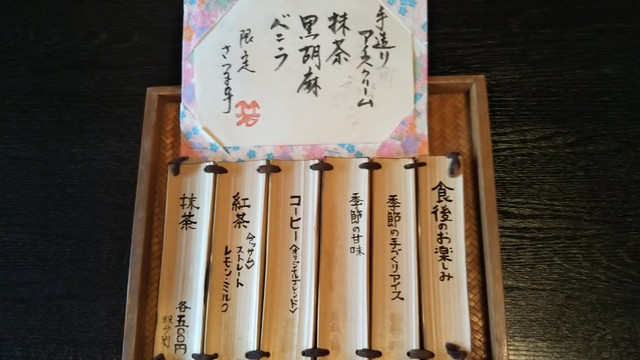 手造り
アイスクリーム
抹茶
黒胡麻
バニラ
限定
さつま芋
食後のお楽しみ
季節の手づくりアイス
季節の甘味
コーヒー〈オリジナルブレンド〉
紅茶〈アッサム〉
ストレート
レモン・ミルク
抹茶
各五〇〇円
税分別